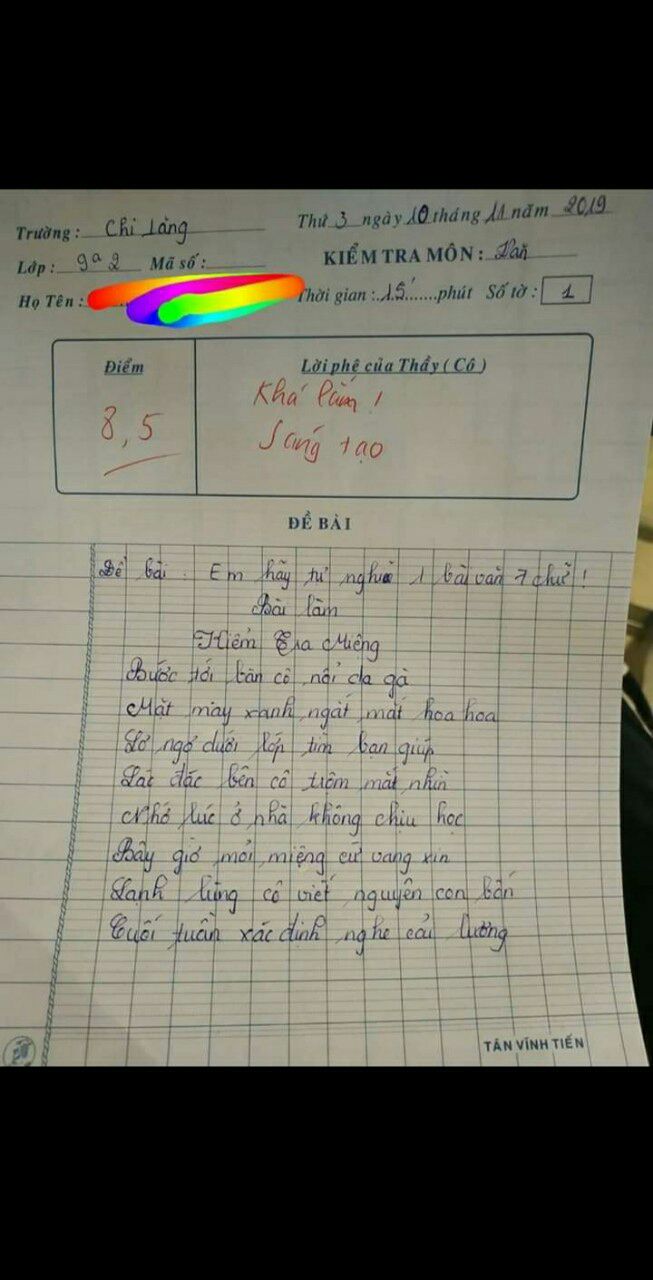 Trường : Chi Lăng
Thứ 3 ngày 10 tháng 11 năm 2019
Lớp : 9a2 Mã số :
KIỂM TRA MÔN : Văn
Họ Tên :
Thời gian : 15 phút Số tờ : 1
Điểm
Lời phê của Thầy ( Cô )
8,5
Khá lắm !
Sáng tạo
ĐỀ BÀI
Đề bài : Em hãy tự nghĩ 1 bài văn 7 chữ !
Bài làm
Kiểm Tra Miệng
Bước tới bàn cô nổi da gà
Mặt mày xanh ngắt mắt hoa hoa
Lơ ngơ dưới lớp tìm bạn giúp
Lác đác bên cô trộm mắt nhìn
Nhớ lúc ở nhà không chịu học
Bây giờ mỏi miệng cứ vang xin
Lạnh lùng cô viết nguyên con bốn
Cuối tuần xác định nghe cải lương
TÂN VĨNH TIẾN